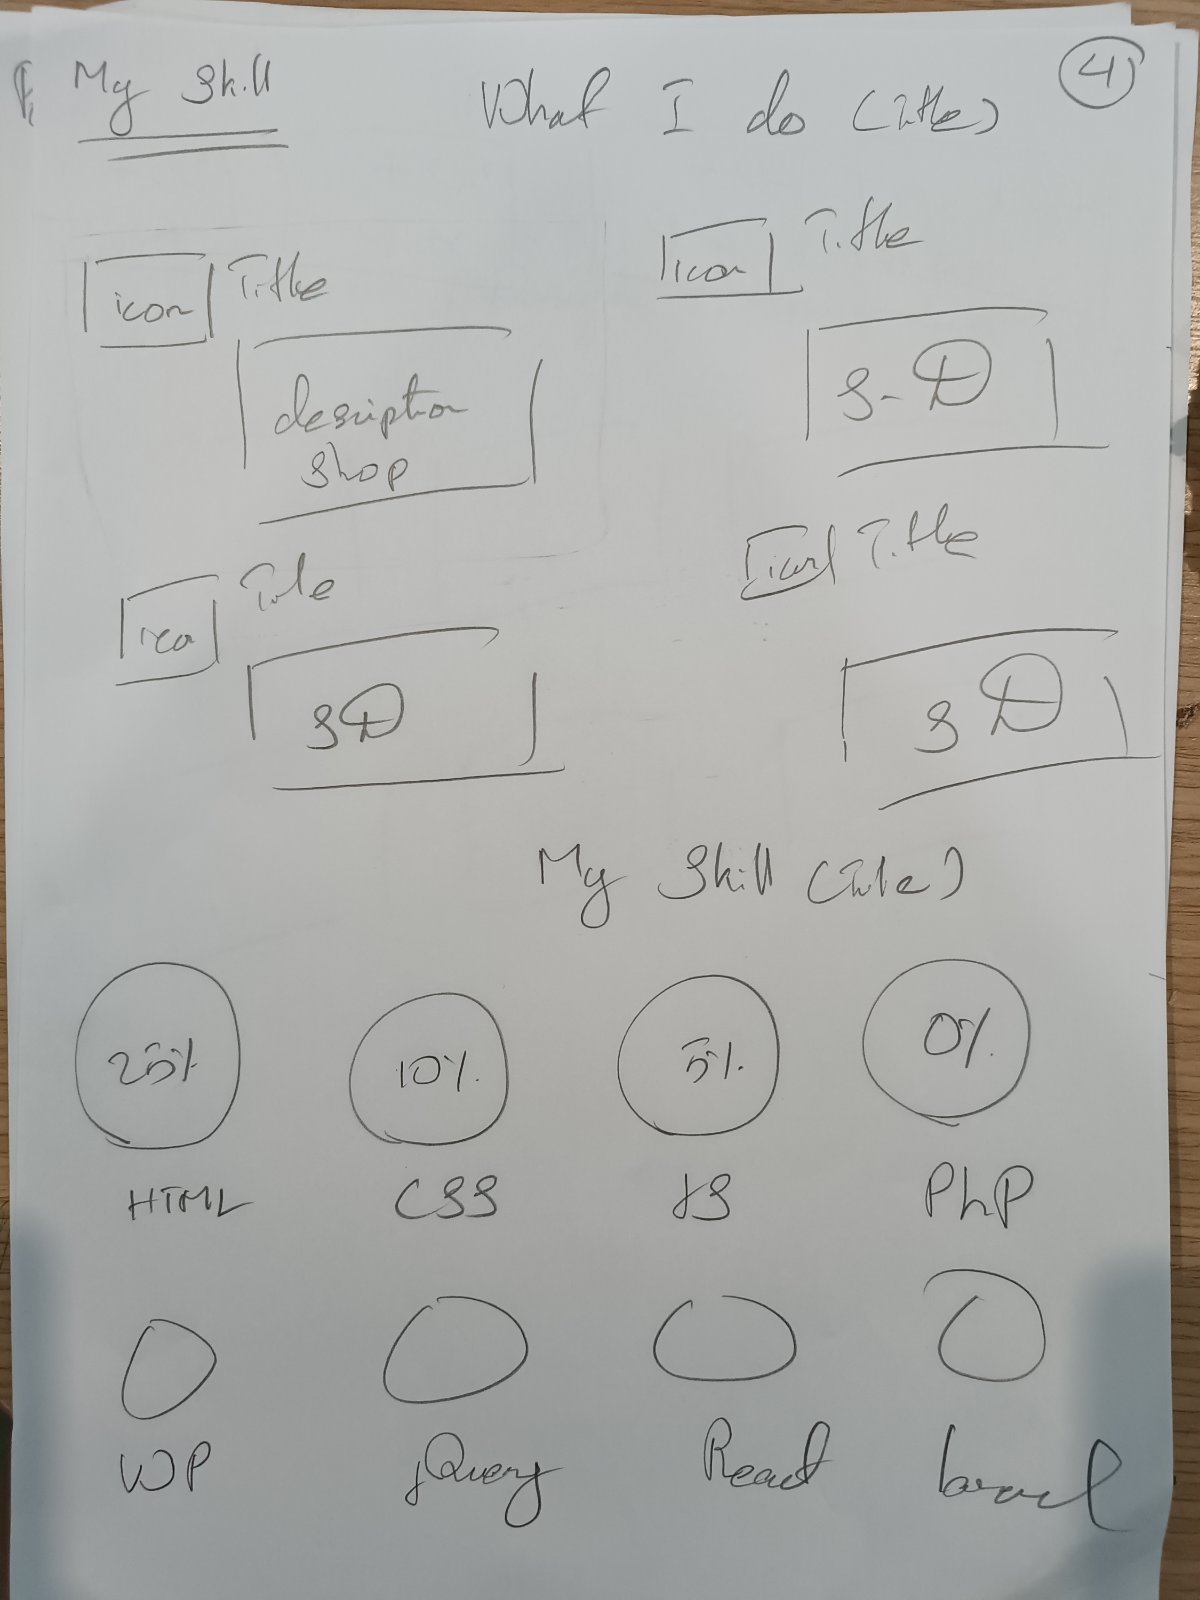 My Skill
What I do (Title)
4
icon Title
description
shop
icon Title
S-D
icon Title
SD
icon Title
SD
My Skill (Title)
25% 10% 5% 0%
HTML CSS JS PHP
WP jQuery React laravel